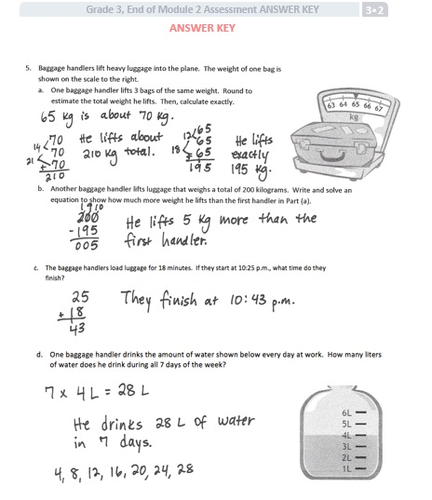 Grade 3, End of Module 2 Assessment ANSWER KEY
3•2
ANSWER KEY
5. Baggage handlers lift heavy luggage into the plane. The weight of one bag is
shown on the scale to the right.
a. One baggage handler lifts 3 bags of the same weight. Round to
estimate the total weight he lifts. Then, calculate exactly.
63 64 65 66 67
kg
65 kg is about 70 kg.
14 < 70
21 < 70
+ 70
210
He lifts about
210 kg total.
12 < 65
18 < 65
+ 65
195
He lifts
exactly
195 kg.
b. Another baggage handler lifts luggage that weighs a total of 200 kilograms. Write and solve an
equation to show how much more weight he lifts than the first handler in Part (a).
1 9 10
200
- 195
005
He lifts 5 kg more than the
first handler.
c. The baggage handlers load luggage for 18 minutes. If they start at 10:25 p.m., what time do they
finish?
25
+ 18
43
They finish at 10:43 p.m.
d. One baggage handler drinks the amount of water shown below every day at work. How many liters
of water does he drink during all 7 days of the week?
7 x 4 L = 28 L
He drinks 28 L of water
in 7 days.
4, 8, 12, 16, 20, 24, 28
6L
5L
4L
3L
2L
1L